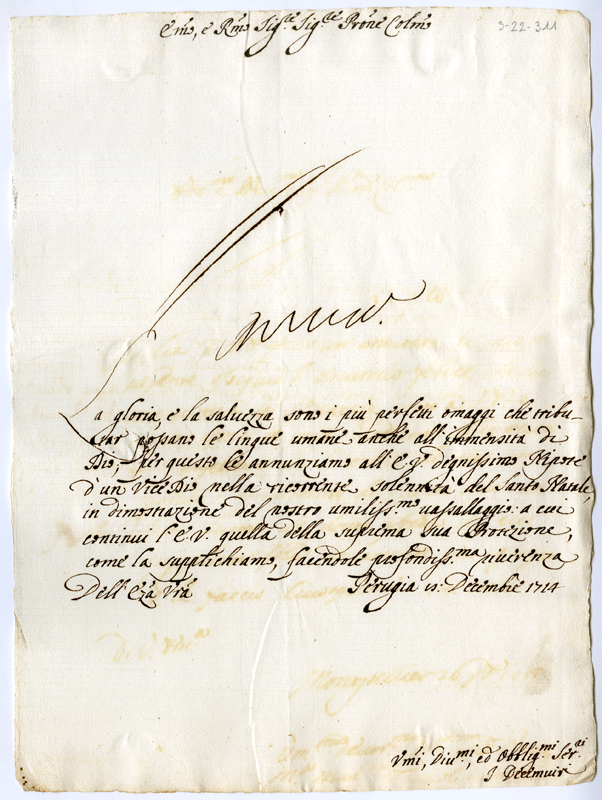 3-22-311
Em͞o, e Rm͞o Sig.re Sig.re Pro͞ne Colm͞o
La gloria, e la salvezza sono i più perfetti omaggi che tribu-
tar possano le lingue umane anche all'immensità di
Dio; Per questo le annunziamo all'E.V. degnissimo Nipote
d'un Vice Dio nella ricorrente solennità del Santo Natale,
in dimostrazione del nostro umiliss.mo vassallaggio: a cui
continui l'E.V. quella della suprema sua Protezione,
come la supplichiamo, facendole profondiss.ma riverenza
Dell'E͞za V͞ra Perugia Decembre 1714
Vm͞i, Div.mi, ed Obblig.mi Ser.ri
J Decemviri